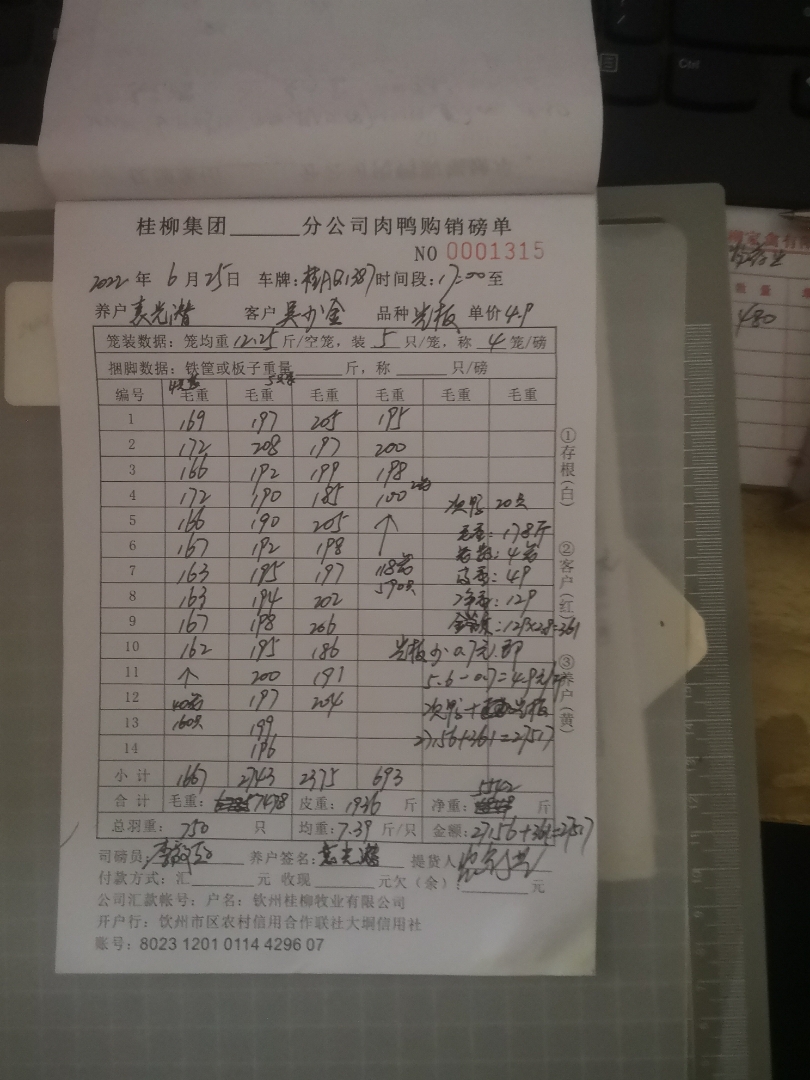 桂柳集团______分公司肉鸭购销磅单
NO 0001315
2022 年 6 月 25 日 车牌: 时间段: 17:00 至
养户 客户 吴 金 品种 光板 单价 4.9
笼装数据: 笼均重 12.25 斤/空笼, 装 5 只/笼, 称 4 笼/磅
捆脚数据: 铁筐或板子重量______斤, 称______只/磅
编号 毛重 毛重 毛重 毛重 毛重 毛重
1 169 197 205 195
2 172 208 197 200
3 166 192 199 198
4 172 190 185 100 次鸭 20只
5 166 190 205 ↑ 毛重: 178斤
6 167 192 198
7 163 195 197 118笼
8 163 194 202 590只 净重: 129
9 167 198 206
10 162 195 186 光板少0.7元
11 ↑ 200 191 5.6-0.7=4.9元/斤
12 40笼 197 204
13 160只 199 27156+361=27517
14 196
小计 1667 2743 2375 693
合计 毛重: 7478 皮重: 1936 斤 净重: 5542 斤
总羽重: 750 只 均重: 7.39 斤/只 金额: 27156+361=27517
司磅员: 养户签名: 提货人
付款方式: 汇______元 收现______元欠(余):______元
公司汇款帐号: 户名: 钦州桂柳牧业有限公司
开户行: 钦州市区农村信用合作联社大垌信用社
账号: 8023 1201 0114 4296 07
①存根(白)
②客户(红)
③养户(黄)
Ctrl
480